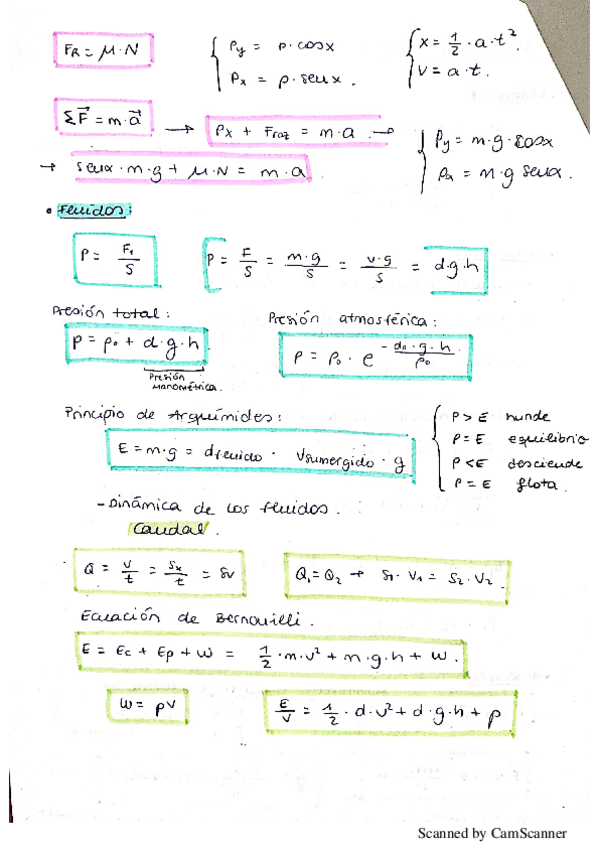 FR = μ·N
Py = p·cosx
Px = p·senx.
x = 1/2·a·t².
v = a·t.
ΣF⃗ = m·a⃗ → Px + Froz = m·a →
Py = m·g·cosx
Px = m·g senx.
→ senx·m·g + μ·N = m·a
• Fluidos:
P = F₁/S
P = F/S = m·g/S = v·g/S = d·g·h
Presión total:
P = p₀ + d·g·h
Presión manométrica.
Presión atmosférica:
P = p₀ · e^(-d₀·g·h/p₀)
Principio de Arquímides:
E = m·g = dfluido · Vsumergido · g
P > E hunde
P = E equilibrio
P < E desciende
P = E flota.
- Dinámica de los fluidos.
Caudal.
Q = V/t = Sx/t = Sv
Q₁ = Q₂ → S₁·V₁ = S₂·V₂.
Ecuación de Bernouilli.
E = Ec + Ep + W = 1/2·m·v² + m·g·h + W.
W = pV
E/V = 1/2·d·v² + d·g·h + p
Scanned by CamScanner